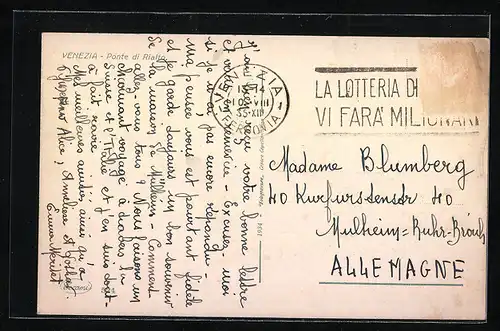 VENEZIA - Ponte di Rialto
J'ai bien reçu votre bonne lettre
et vous en remercie - Excusez-moi
si je n'ai pas encore répondu -
Ma pensée vous est pourtant fidèle
et je garde toujours un bon souvenir
de la maison de Mülheim - Comment
allez-vous tous? Nous faisons un
charmant voyage à travers la
Suisse et l'Italie et j'en suis tout-
à fait ravie
Mes meilleures amitiés, ainsi qu'à
Alice, Anneliese et
Emma
LA LOTTERIA DI
VI FARÀ MILIONARI
Madame Blumberg
40 Kurfürstenstr 40
Mülheim-Ruhr-Broich
ALLEMAGNE
1934